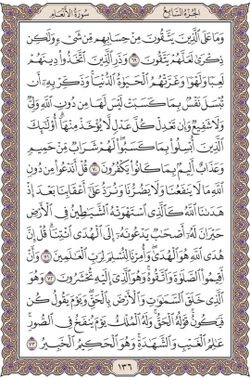 الجزء السابع سورة الأنعام
وَمَا عَلَى ٱلَّذِينَ يَتَّقُونَ مِنْ حِسَابِهِم مِّن شَىْءٍ وَلَٰكِن
ذِكْرَىٰ لَعَلَّهُمْ يَتَّقُونَ ٦٩ وَذَرِ ٱلَّذِينَ ٱتَّخَذُوا۟ دِينَهُمْ
لَعِبًا وَلَهْوًا وَغَرَّتْهُمُ ٱلْحَيَوٰةُ ٱلدُّنْيَا وَذَكِّرْ بِهِۦٓ أَن
تُبْسَلَ نَفْسٌۢ بِمَا كَسَبَتْ لَيْسَ لَهَا مِن دُونِ ٱللَّهِ وَلِىٌّ
وَلَا شَفِيعٌ وَإِن تَعْدِلْ كُلَّ عَدْلٍ لَّا يُؤْخَذْ مِنْهَآ أُو۟لَٰٓئِكَ
ٱلَّذِينَ أُبْسِلُوا۟ بِمَا كَسَبُوا۟ لَهُمْ شَرَابٌ مِّنْ حَمِيمٍ
وَعَذَابٌ أَلِيمٌۢ بِمَا كَانُوا۟ يَكْفُرُونَ ٧٠ قُلْ أَنَدْعُوا۟ مِن دُونِ
ٱللَّهِ مَا لَا يَنفَعُنَا وَلَا يَضُرُّنَا وَنُرَدُّ عَلَىٰٓ أَعْقَابِنَا بَعْدَ إِذْ
هَدَىٰنَا ٱللَّهُ كَٱلَّذِى ٱسْتَهْوَتْهُ ٱلشَّيَٰطِينُ فِى ٱلْأَرْضِ
حَيْرَانَ لَهُۥٓ أَصْحَٰبٌ يَدْعُونَهُۥٓ إِلَى ٱلْهُدَى ٱئْتِنَا قُلْ إِنَّ
هُدَى ٱللَّهِ هُوَ ٱلْهُدَىٰ وَأُمِرْنَا لِنُسْلِمَ لِرَبِّ ٱلْعَٰلَمِينَ ٧١ وَأَنْ
أَقِيمُوا۟ ٱلصَّلَوٰةَ وَٱتَّقُوهُ وَهُوَ ٱلَّذِىٓ إِلَيْهِ تُحْشَرُونَ ٧٢ وَهُوَ
ٱلَّذِى خَلَقَ ٱلسَّمَٰوَٰتِ وَٱلْأَرْضَ بِٱلْحَقِّ وَيَوْمَ يَقُولُ كُن
فَيَكُونُ قَوْلُهُ ٱلْحَقُّ وَلَهُ ٱلْمُلْكُ يَوْمَ يُنفَخُ فِى ٱلصُّورِ
عَٰلِمُ ٱلْغَيْبِ وَٱلشَّهَٰدَةِ وَهُوَ ٱلْحَكِيمُ ٱلْخَبِيرُ ٧٣
١٣٦